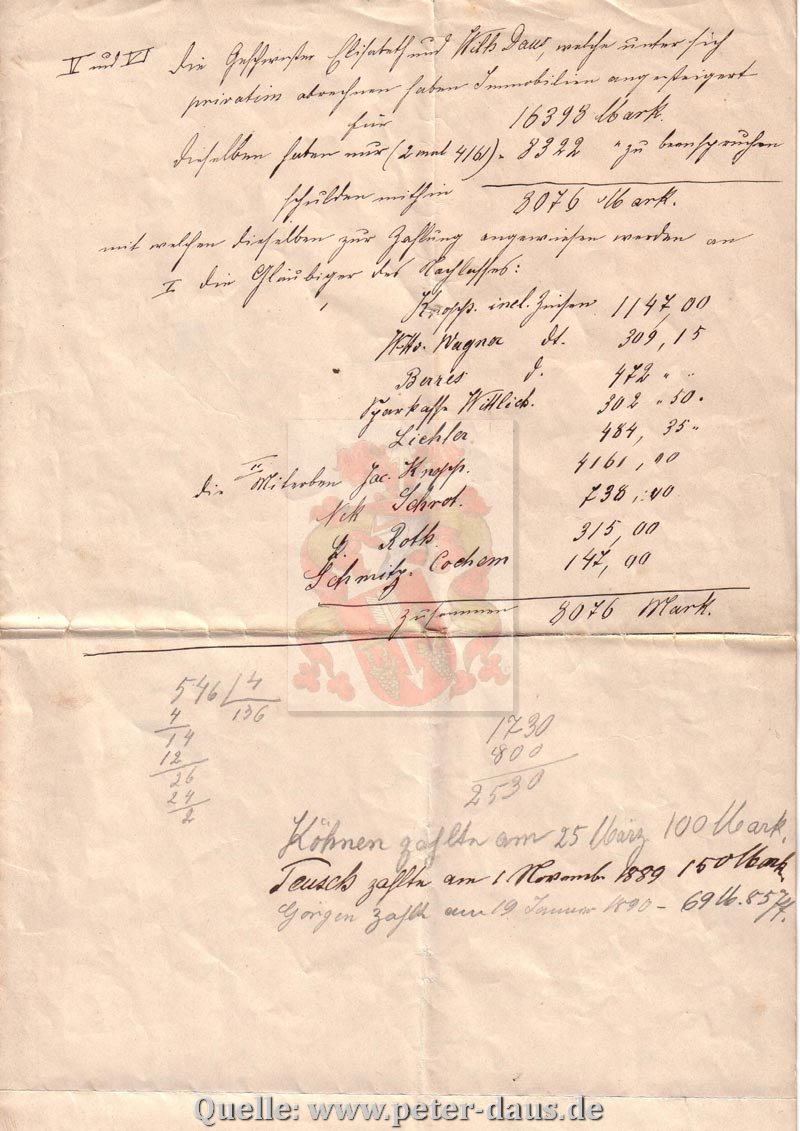 V und VI die Geschwister Elisabeth und Wilh Daus, welche unter sich
privatim abrechnen haben Immobilien angesteigert
für 16398 Mark.
dieselben haben nur (2 mal 4161) = 8322 " zu beanspruchen
schulden mithin 8076 Mark.
mit welchen dieselben zur Zahlung angewiesen werden an
I die Gläubiger des Nachlasses:
Knopp. incl. Zinsen 1147,00
Wtw. Wagner dt. 309,15
Berres d. 472 " "
Sparkasse Wittlich. 302 " 50 "
Liehler 484, 35 "
II
die Miterben Jac. Knopp. 4161,00
Nck Schrot. 738,00
Roth. 315,00
Schmitz. Cochem 147,00
zusammen 8076 Mark.
546 / 4
4 136
14
12
26
24
2
1730
800
2530
Köhnen zahlte am 25 März 100 Mark.
Teusch zahlte am 1 Novemb. 1889 150 Mark
Görgen zahlt am 19. Januar 1890 – 69 M. 85
Quelle: www.peter-daus.de